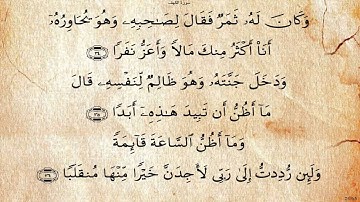 سورة الكهف
وَكَانَ لَهُۥ ثَمَرٌ فَقَالَ لِصَٰحِبِهِۦ وَهُوَ يُحَاوِرُهُۥٓ
أَنَا۠ أَكْثَرُ مِنكَ مَالًا وَأَعَزُّ نَفَرًا ﴿٣٤﴾
وَدَخَلَ جَنَّتَهُۥ وَهُوَ ظَالِمٌ لِّنَفْسِهِۦ قَالَ
مَآ أَظُنُّ أَن تَبِيدَ هَٰذِهِۦٓ أَبَدًا ﴿٣٥﴾
وَمَآ أَظُنُّ ٱلسَّاعَةَ قَآئِمَةً
وَلَئِن رُّدِدتُّ إِلَىٰ رَبِّى لَأَجِدَنَّ خَيْرًا مِّنْهَا مُنقَلَبًا ﴿٣٦﴾